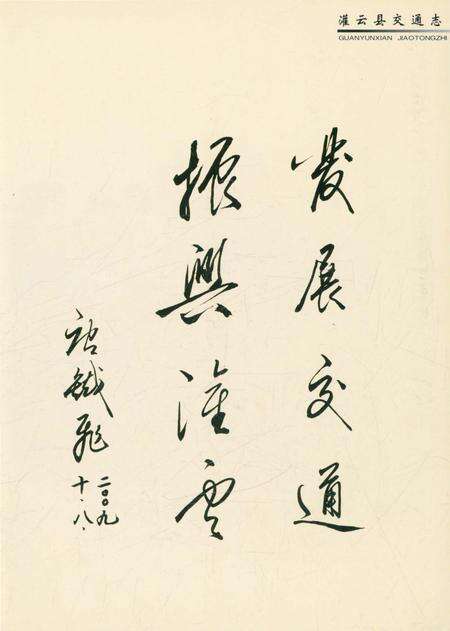 灌云县交通志
GUANYUNXIAN JIAOTONGZHI
发展交通
振興灌雲
铁飛
二〇〇九
十.八.